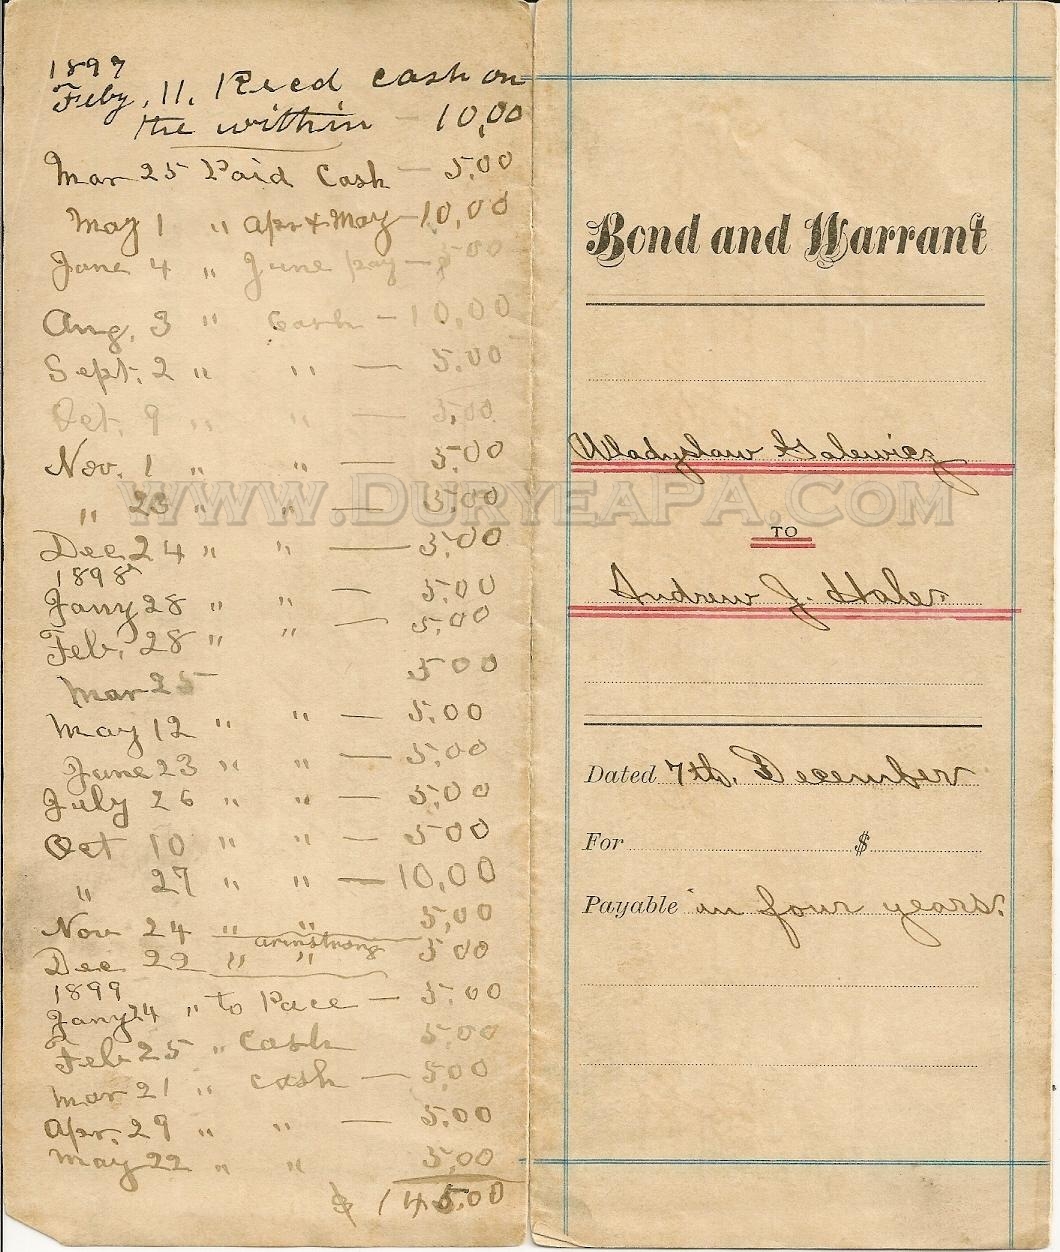 1897
Feby. 11. Recd cash on
the within — 10,00
Mar 25 Paid Cash — 5.00
May 1 " Apr & May — 10,00
June 4 " June pay — 5.00
Aug. 3 " Cash — 10,00
Sept. 2 " " — 5.00
Oct. 9 " " — 5,00
Nov. 1 " " — 5,00
" 23 " " — 5,00
Dec 24 " " — 5,00
1898
Jany 28 " " — 5,00
Feb. 28 " " — 5,00
Mar 25 5 00
May 12 " " — 5,00
June 23 " " — 5,00
July 26 " " — 5,00
Oct 10 " " — 5 00
" 27 " " — 10,00
Nov 24 " " — 5,00
armstrong
Dec 22 " " 5 00
1899
Jany 24 " to Pace — 5.00
Feb 25 " Cash 5,00
Mar 21 " Cash — 5,00
Apr. 29 " " — 5,00
May 22 " " 5,00
$ 145.00
Bond and Warrant
Wladyslaw Galewicz
TO
Andrew J. Hales
Dated 7th. December
For $
Payable in four years.
www.DuryeaPA.com